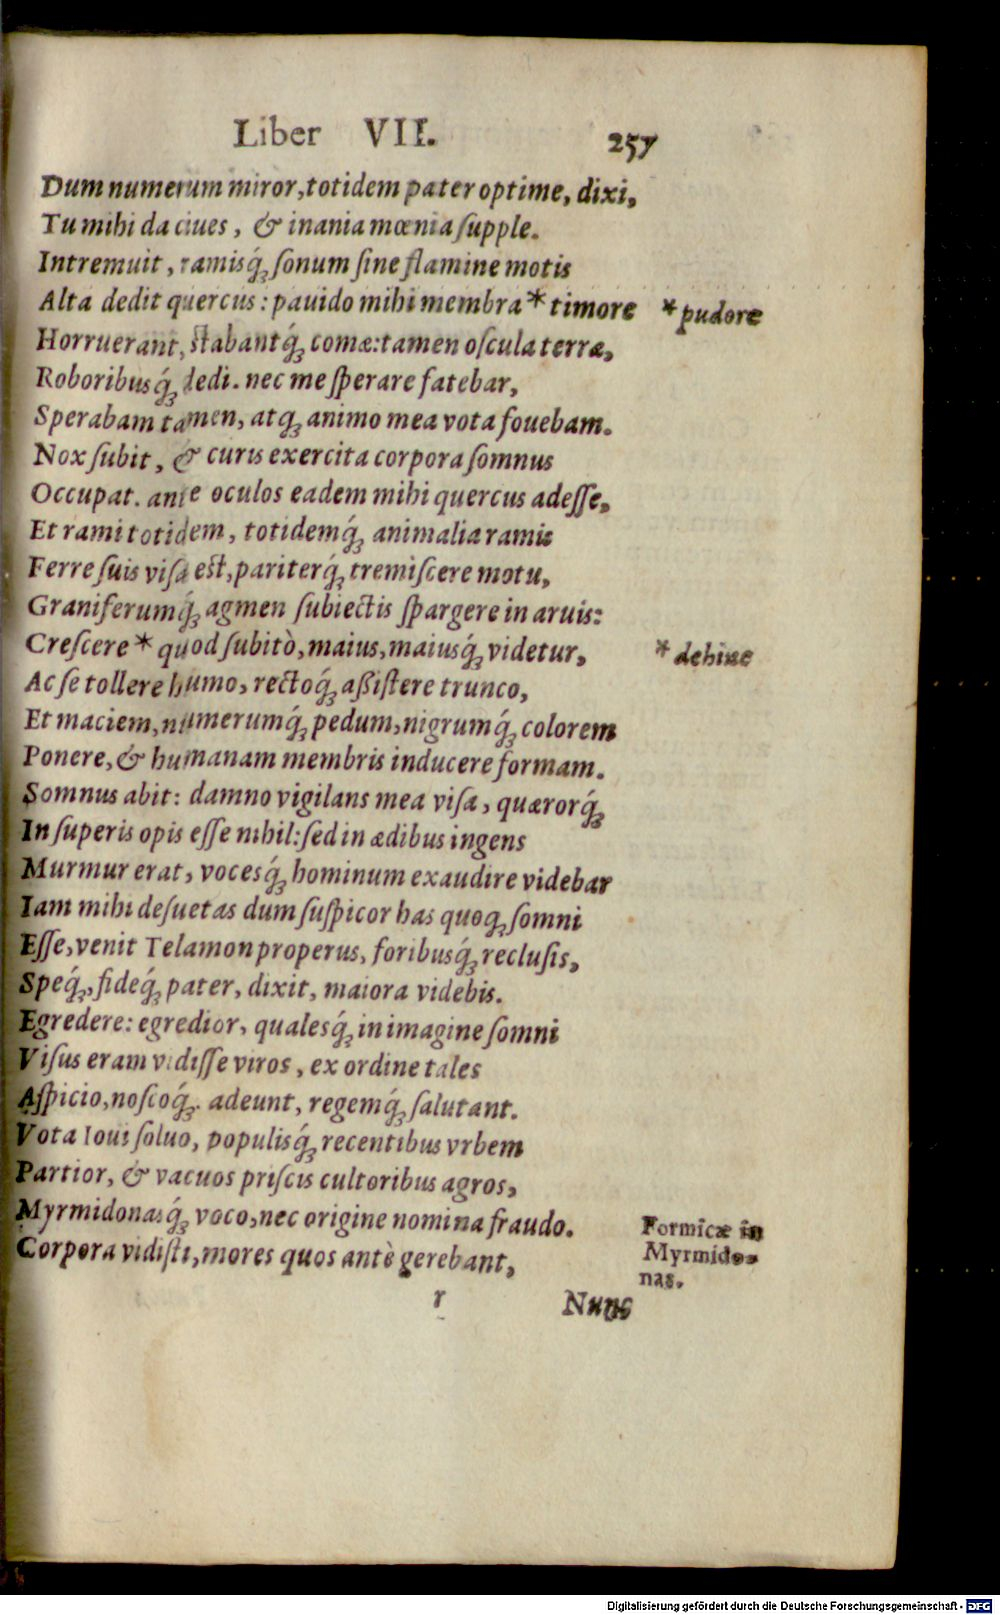 Liber VII. 257
Dum numerum miror, totidem pater optime, dixi,
Tu mihi da ciues, & inania mœnia ſupple.
Intremuit, ramisq́ꝫ ſonum ſine flamine motis
Alta dedit quercus: pauido mihi membra * timore * pudore
Horruerant, ſtabantq́ꝫ comæ: tamen oſcula terræ,
Roboribusq́ꝫ dedi. nec me ſperare fatebar,
Sperabam tamen, atqꝫ animo mea vota fouebam.
Nox ſubit, & curis exercita corpora ſomnus
Occupat. ante oculos eadem mihi quercus adeſſe,
Et rami totidem, totidemq́ꝫ animalia ramis
Ferre ſuis viſa eſt, pariterq́ꝫ tremiſcere motu,
Graniferumq́ꝫ agmen ſubiectis ſpargere in aruis:
Creſcere * quod ſubitò, maius, maiusq́ꝫ videtur, * dehinc
Ac ſe tollere humo, rectoq́ꝫ aßiſtere trunco,
Et maciem, numerumq́ꝫ pedum, nigrumq́ꝫ colorem
Ponere, & humanam membris inducere formam.
Somnus abit: damno vigilans mea viſa, quærorq́ꝫ
In ſuperis opis eſſe nihil: ſed in ædibus ingens
Murmur erat, vocesq́ꝫ hominum exaudire videbar
Iam mihi deſuetas dum ſuſpicor has quoqꝫ ſomni
Eſſe, venit Telamon properus, foribusq́ꝫ recluſis,
Speq́ꝫ, fideq́ꝫ pater, dixit, maiora videbis.
Egredere: egredior, qualesq́ꝫ in imagine ſomni
Viſus eram vidiſſe viros, ex ordine tales
Aſpicio, noſcoq́ꝫ. adeunt, regemq́ꝫ ſalutant.
Vota Ioui ſoluo, populisq́ꝫ recentibus vrbem
Partior, & vacuos priſcis cultoribus agros,
Myrmidonasq́ꝫ voco, nec origine nomina fraudo.
Corpora vidiſti, mores quos antè gerebant,
Formicæ in
Myrmido-
nas.
r Nunc
Digitalisierung gefördert durch die Deutsche Forschungsgemeinschaft - DFG